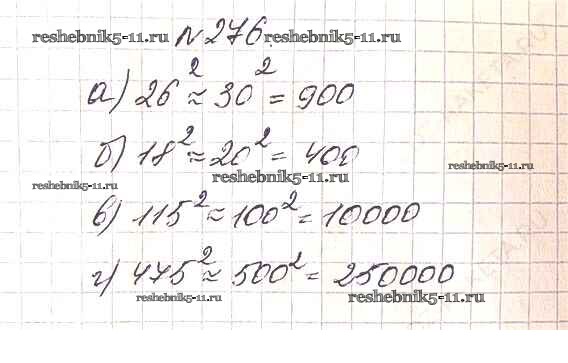 reshebnik5-11.ru №276. reshebnik5-11.ru
а) 26² ≈ 30² = 900
б) 18² ≈ 20² = 400
reshebnik5-11.ru
reshebnik5-11.ru
reshebnik5-11.ru
в) 115² ≈ 100² = 10000
г) 475² ≈ 500² = 250000
reshebnik5-11.ru
reshebnik5-11.ru